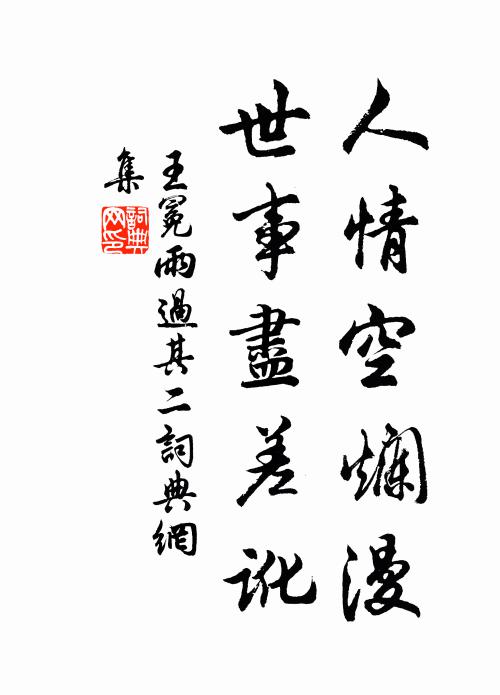 人情空爛漫
世事盡差訛
王冕雨過其二詞典網
集
詞典
网印